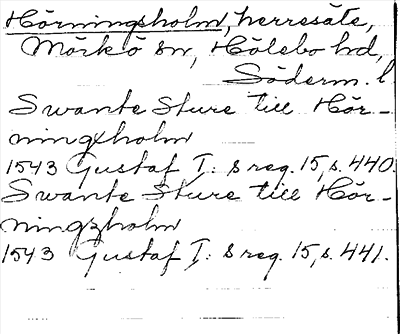 Hörningsholm, herresäte,
Mörkö sn, Hölebo hd,
Söderm. l.
Swante Sture till Hör-
ningxholm
1543 Gustaf I: s reg. 15, s. 440.
Swante Sture till Hör-
ningzholm
1543 Gustaf I: s reg. 15, s. 441.